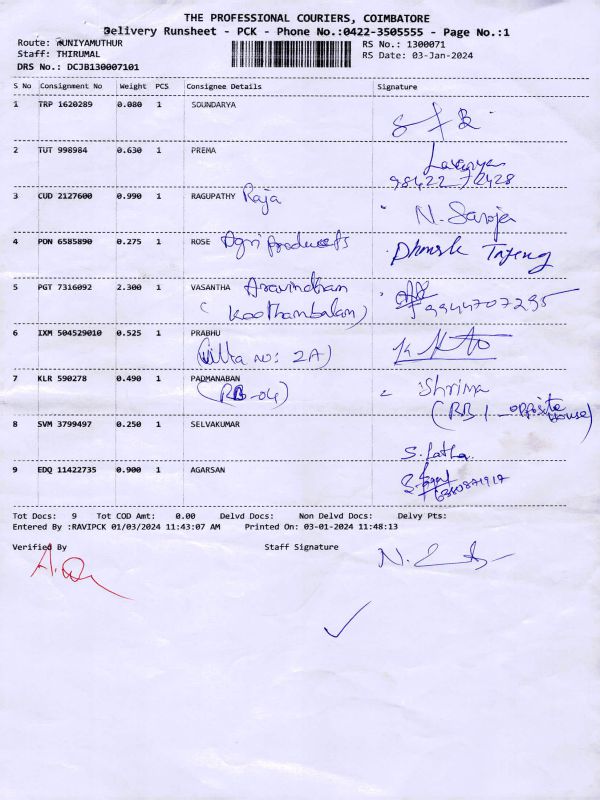 THE PROFESSIONAL COURIERS, COIMBATORE
Delivery Runsheet - PCK - Phone No.:0422-3505555 - Page No.:1
Route: MUNIYAMUTHUR
RS No.: 1300071
Staff: THIRUMAL
RS Date: 03-Jan-2024
DRS No.: DCJB130007101
S No Consignment No Weight PCS Consignee Details Signature
1 TRP 1620289 0.080 1 SOUNDARYA
2 TUT 998984 0.630 1 PREMA Lavanya
98422 72428
3 CUD 2127600 0.990 1 RAGUPATHY Raja N. Saroja
4 PON 6585890 0.275 1 ROSE Agri products
5 PGT 7316092 2.300 1 VASANTHA Aravindham
(Koothambalam) 9944707295
6 IXM 504529010 0.525 1 PRABHU
(Villa no: 2A)
7 KLR 590278 0.490 1 PADMANABAN Shrima
(RB-04) (RB 1 opposite house)
8 SVM 3799497 0.250 1 SELVAKUMAR
S. Latha
9 EDQ 11422735 0.900 1 AGARSAN
6380871917
Tot Docs: 9 Tot COD Amt: 0.00 Delvd Docs: Non Delvd Docs: Delvy Pts:
Entered By :RAVIPCK 01/03/2024 11:43:07 AM Printed On: 03-01-2024 11:48:13
Verified By Staff Signature